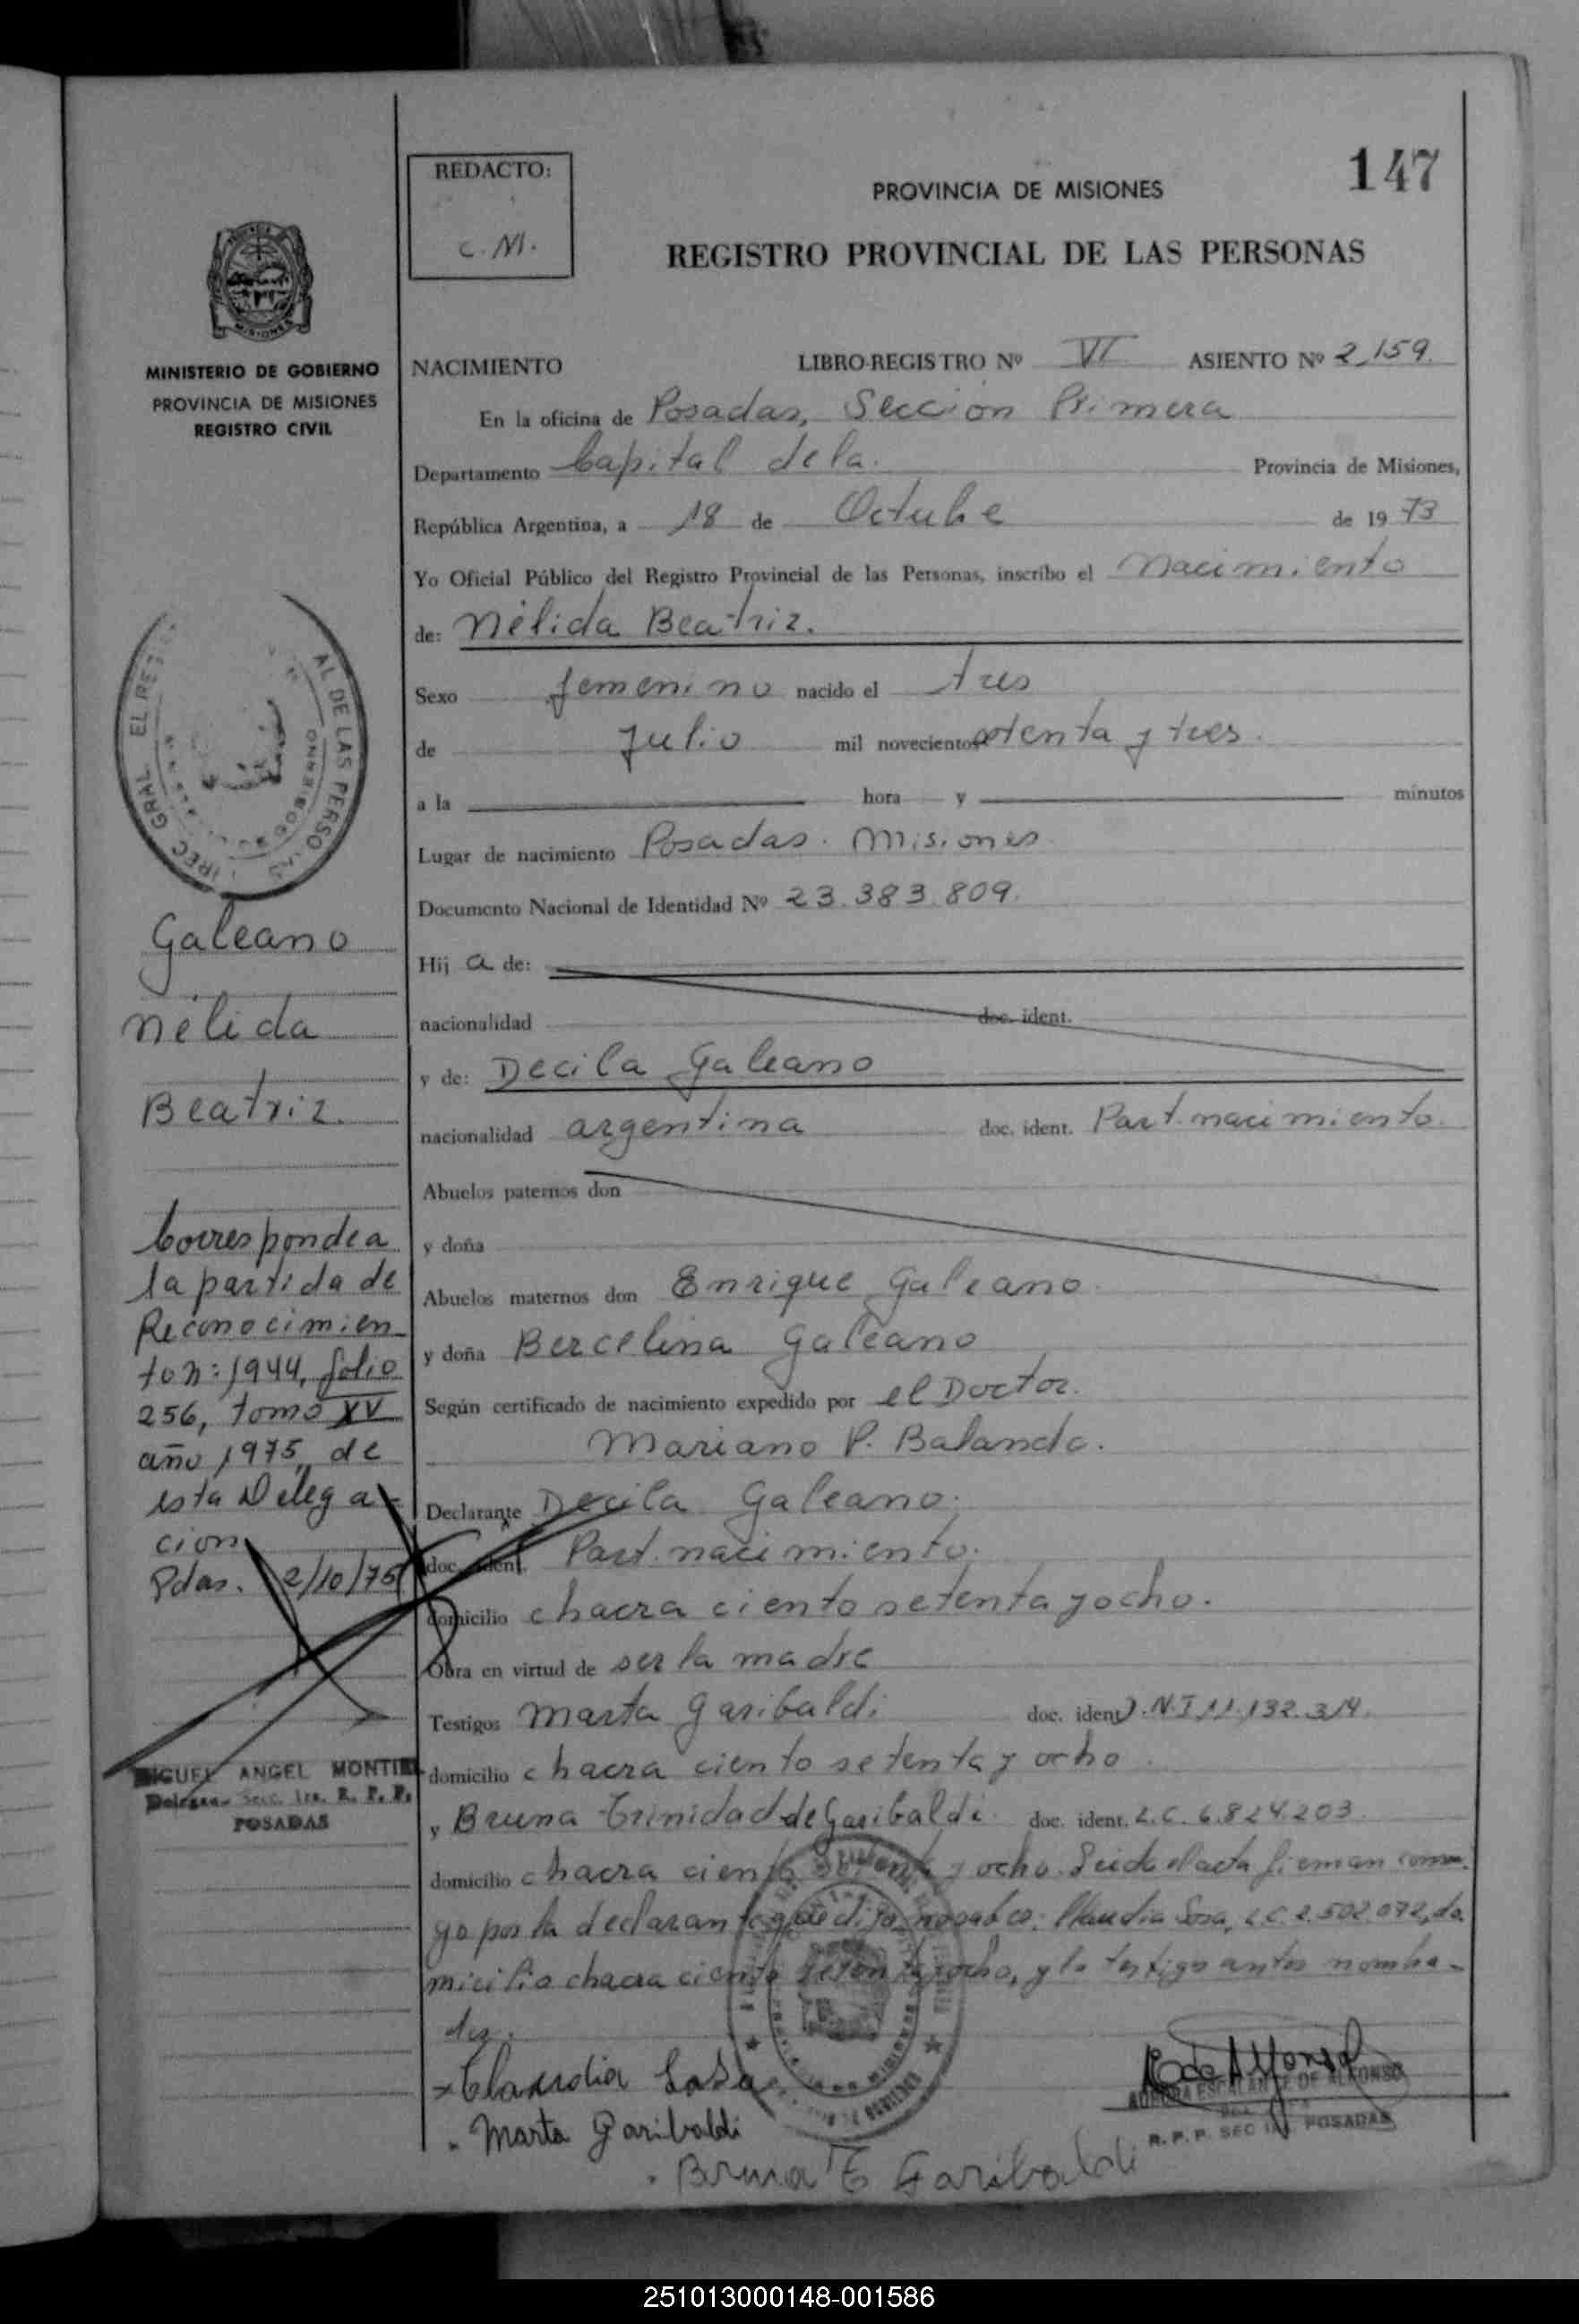 147
REDACTO:
C. M.
PROVINCIA DE MISIONES
REGISTRO PROVINCIAL DE LAS PERSONAS
MISIONES
MINISTERIO DE GOBIERNO
PROVINCIA DE MISIONES
REGISTRO CIVIL
NACIMIENTO LIBRO-REGISTRO Nº VI ASIENTO Nº 2,159.
En la oficina de Posadas, Sección Primera
Departamento Capital de la. Provincia de Misiones,
República Argentina, a 18 de Octubre de 1973
Yo Oficial Público del Registro Provincial de las Personas, inscribo el Nacimiento
de: Nélida Beatriz.
Sexo femenino nacido el tres
de Julio mil novecientos setenta y tres.
a la hora y minutos
Lugar de nacimiento Posadas. Misiones.
Documento Nacional de Identidad Nº 23.383.809.
Hij a de:
nacionalidad doc. ident.
y de: Decila Galeano
nacionalidad argentina doc. ident. Part. nacimiento.
Abuelos paternos don
y doña
Abuelos maternos don Enrique Galeano.
y doña Bercelina Galeano
Según certificado de nacimiento expedido por el Doctor.
Mariano P. Balanda.
Declarante Decila Galeano.
doc. ident. Part. nacimiento.
domicilio chacra ciento setenta y ocho.
Obra en virtud de ser la madre
Testigos Marta Garibaldi doc. ident D.N.I 11.132.314.
domicilio chacra ciento setenta y ocho.
y Bruna Trinidad de Garibaldi doc. ident. L.C. 6.824.203.
domicilio chacra ciento setenta y ocho. Leida el acta firman conmi
go por la declarante que dijo no saber; Claudia Sosa, L.C. 2.502.072, do
micilio chacra ciento setenta y ocho, y los testigos antes nombra-
dos.
Claudia Sosa
Marta Garibaldi
Bruna T Garibaldi
AURORA ESCALANTE DE ALFONSO
R. P. P. SEC 1ra. POSADAS
Galeano
Nélida
Beatriz.
Corresponde a
la partida de
Reconocimien
to n: 1944, folio
256, tomo XV
año 1975, de
esta Delega-
cion
Pdas. 2/10/75
MIGUEL ANGEL MONTIEL
Delegado Secc. 1ra. R. P. P.
POSADAS
251013000148-001586